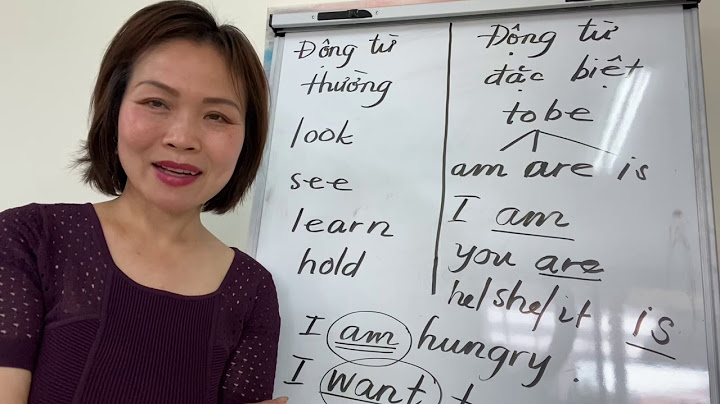 Động từ
thường
look
see
learn
hold
Động từ
đặc biệt
to be
am are is
I am
you are
he/she/it is
I am hungry.
I want